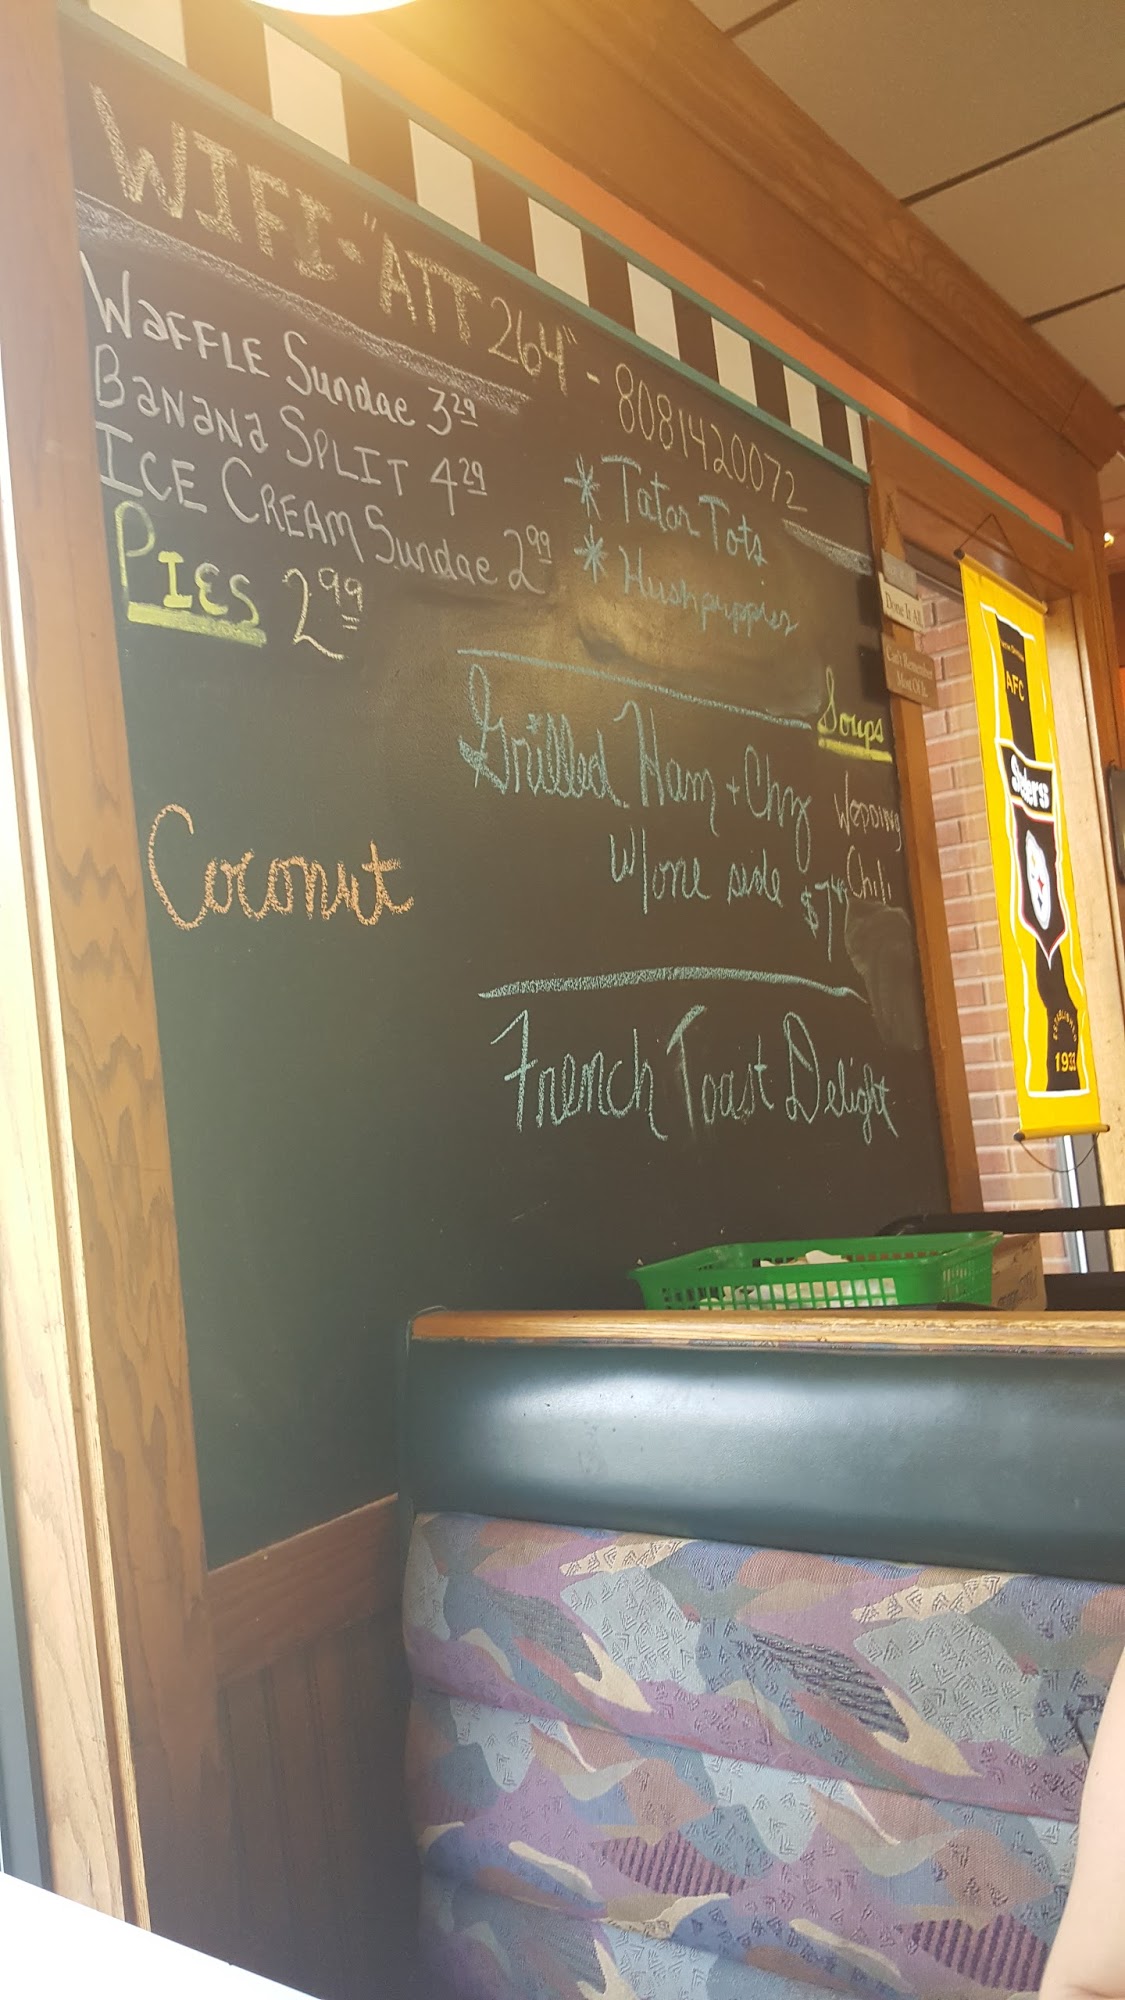 WIFI - "ATT264" - 8081420072
WAFFLE Sundae 3.29
BANANA SPLIT 4.29
ICE CREAM Sundae 2.99
PIES 2.99
Coconut
* Tator Tots
* Hushpuppies
Grilled Ham + Chz
w/one side
Soups
WEDDING
Chili
French Toast Delight
Done It All
Can't Remember
Most Of It.
AFC
Steelers
ESTABLISHED
1933